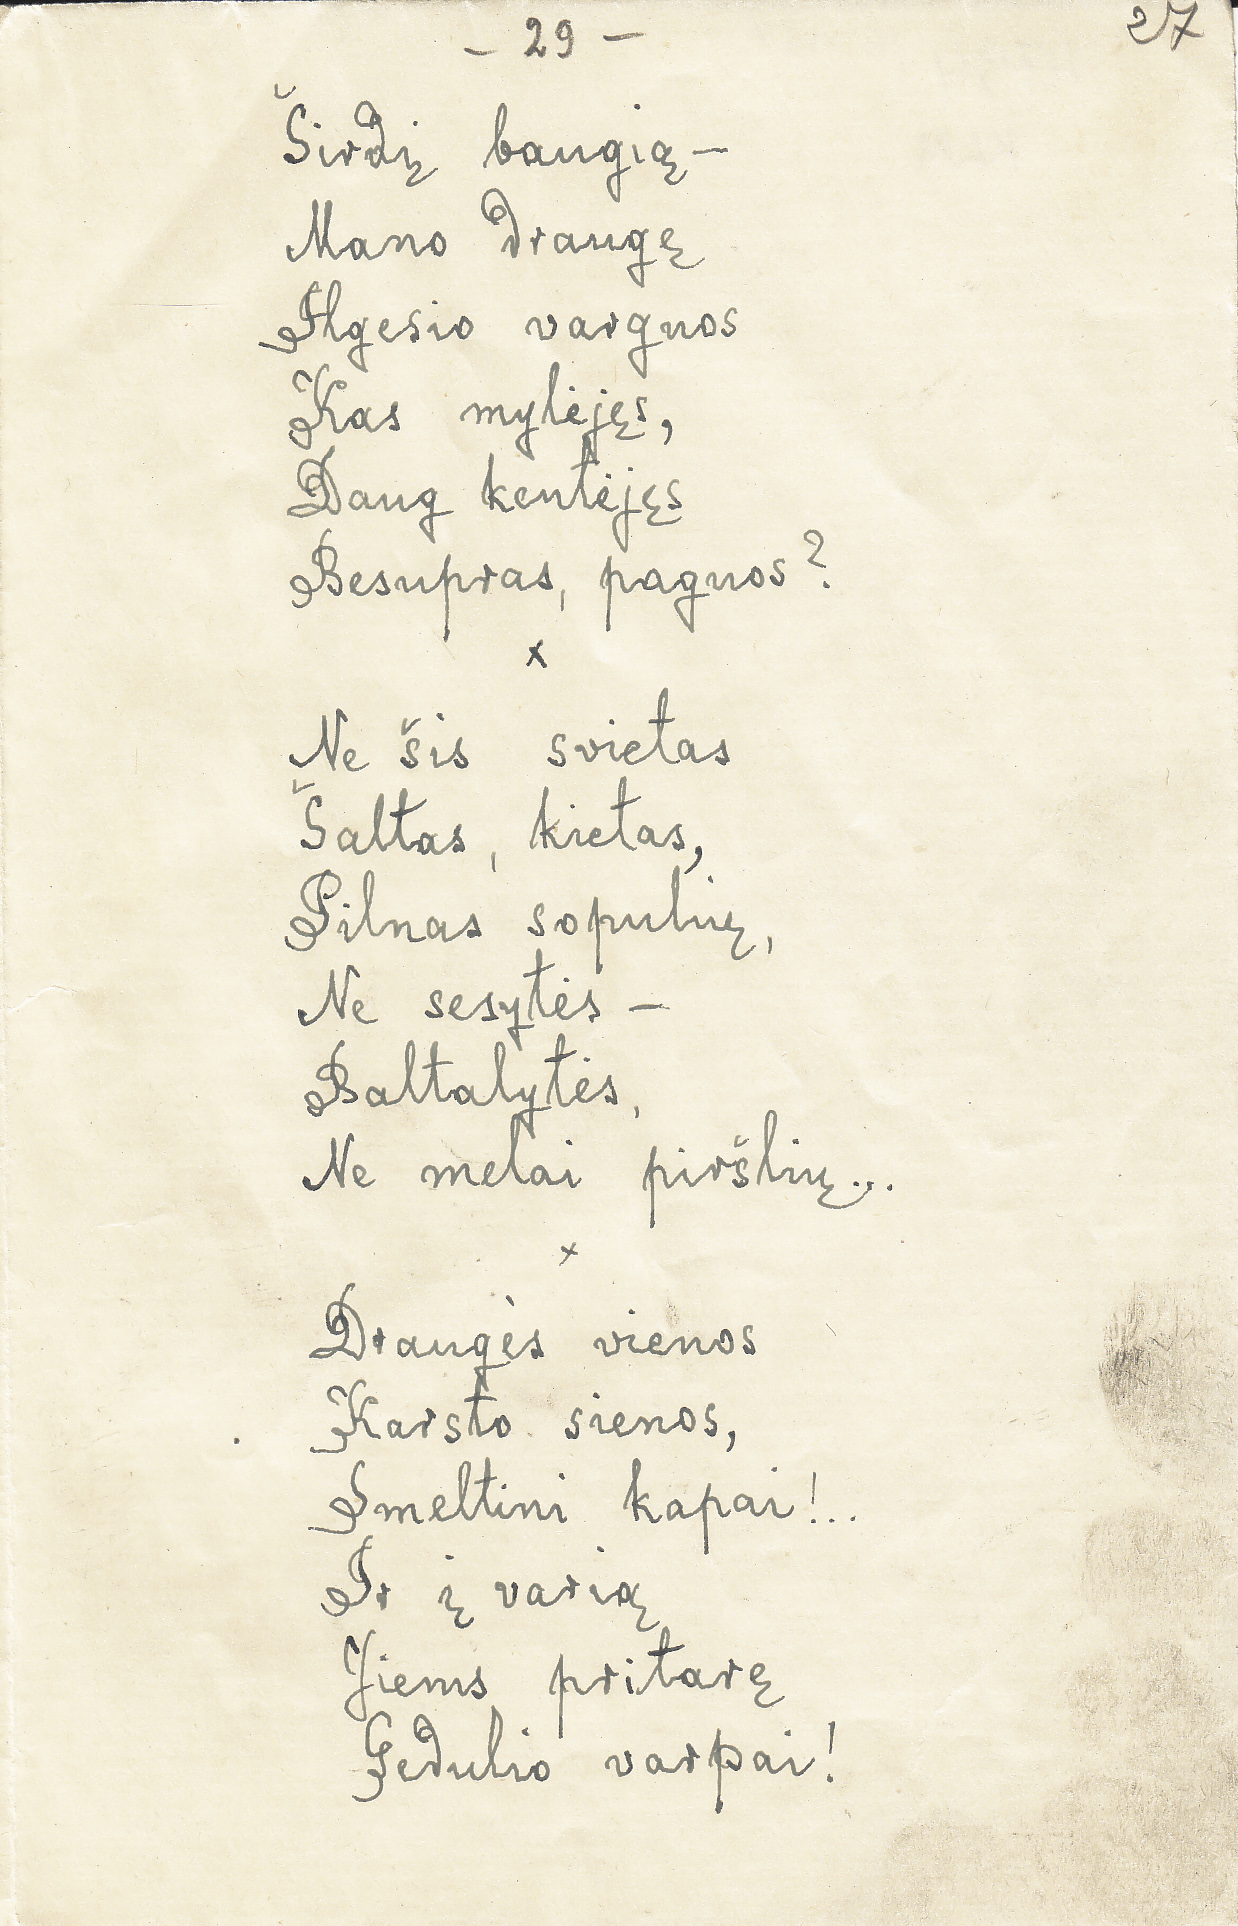 - 29 -
27
Širdį baugią —
Mano draugę
Ilgesio vargnos
Kas mylėjęs,
Daug kentėjęs
Besupras, pagnos?
x
Ne šis svietas
Šaltas, kietas,
Pilnas sopulių,
Ne sesytės —
Baltalytės,
Ne melai piršlių...
x
Draugės vienos
Karsto sienos,
Smeltini kapai!..
Ir į varią
Jiems pritarę
Gedulio varpai!